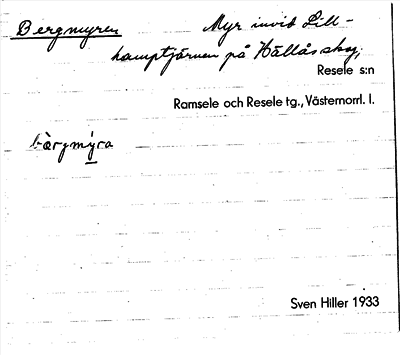 Bergmyren Myr invid Lill-
hamptjärnen på Hällås skog,
Resele s:n
Ramsele och Resele tg., Västernorrl. l.
bärgmýra
Sven Hiller 1933